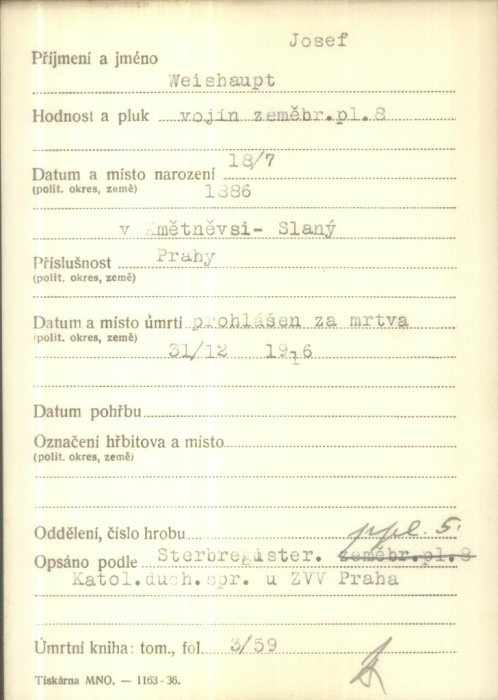 Josef
Příjmení a jméno
Weishaupt
Hodnost a pluk vojín zeměbr.pl.8
18/7
Datum a místo narození
(polit. okres, země) 1886
v Kmětněvsi- Slaný
Příslušnost Prahy
(polit. okres, země)
Datum a místo úmrtí prohlášen za mrtva
(polit. okres, země)
31/12 1916
Datum pohřbu
Označení hřbitova a místo
(polit. okres, země)
Oddělení, číslo hrobu ppl. 5.
Opsáno podle Sterbregister. zeměbr.pl.8
Katol.duch.spr. u ZVV Praha
Úmrtní kniha: tom., fol. 3/59
Tiskárna MNO. — 1163-36.